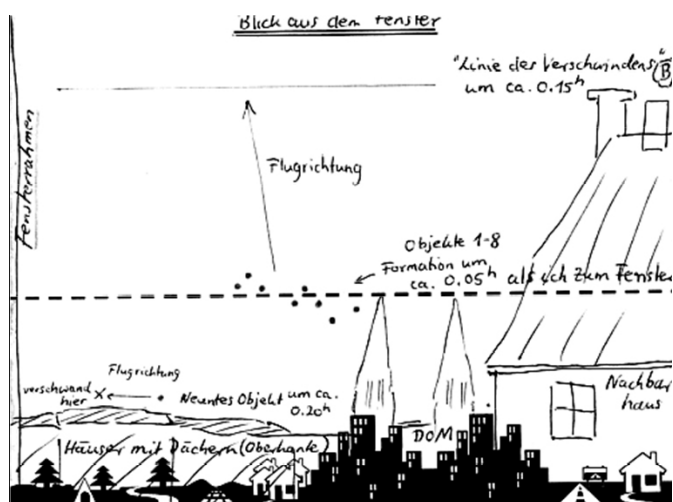 Blick aus dem Fenster
"Linie des Verschwindens" B
um ca. 0.15h
Fensterrahmen
Flugrichtung
Objekte 1-8
Formation um
ca. 0.05h als ich zum Fenster
Flugrichtung
verschwand
hier
Neuntes Objekt um ca.
0.20h
Nachbar
haus
DOM
Häuser mit Dächern (Oberkante)